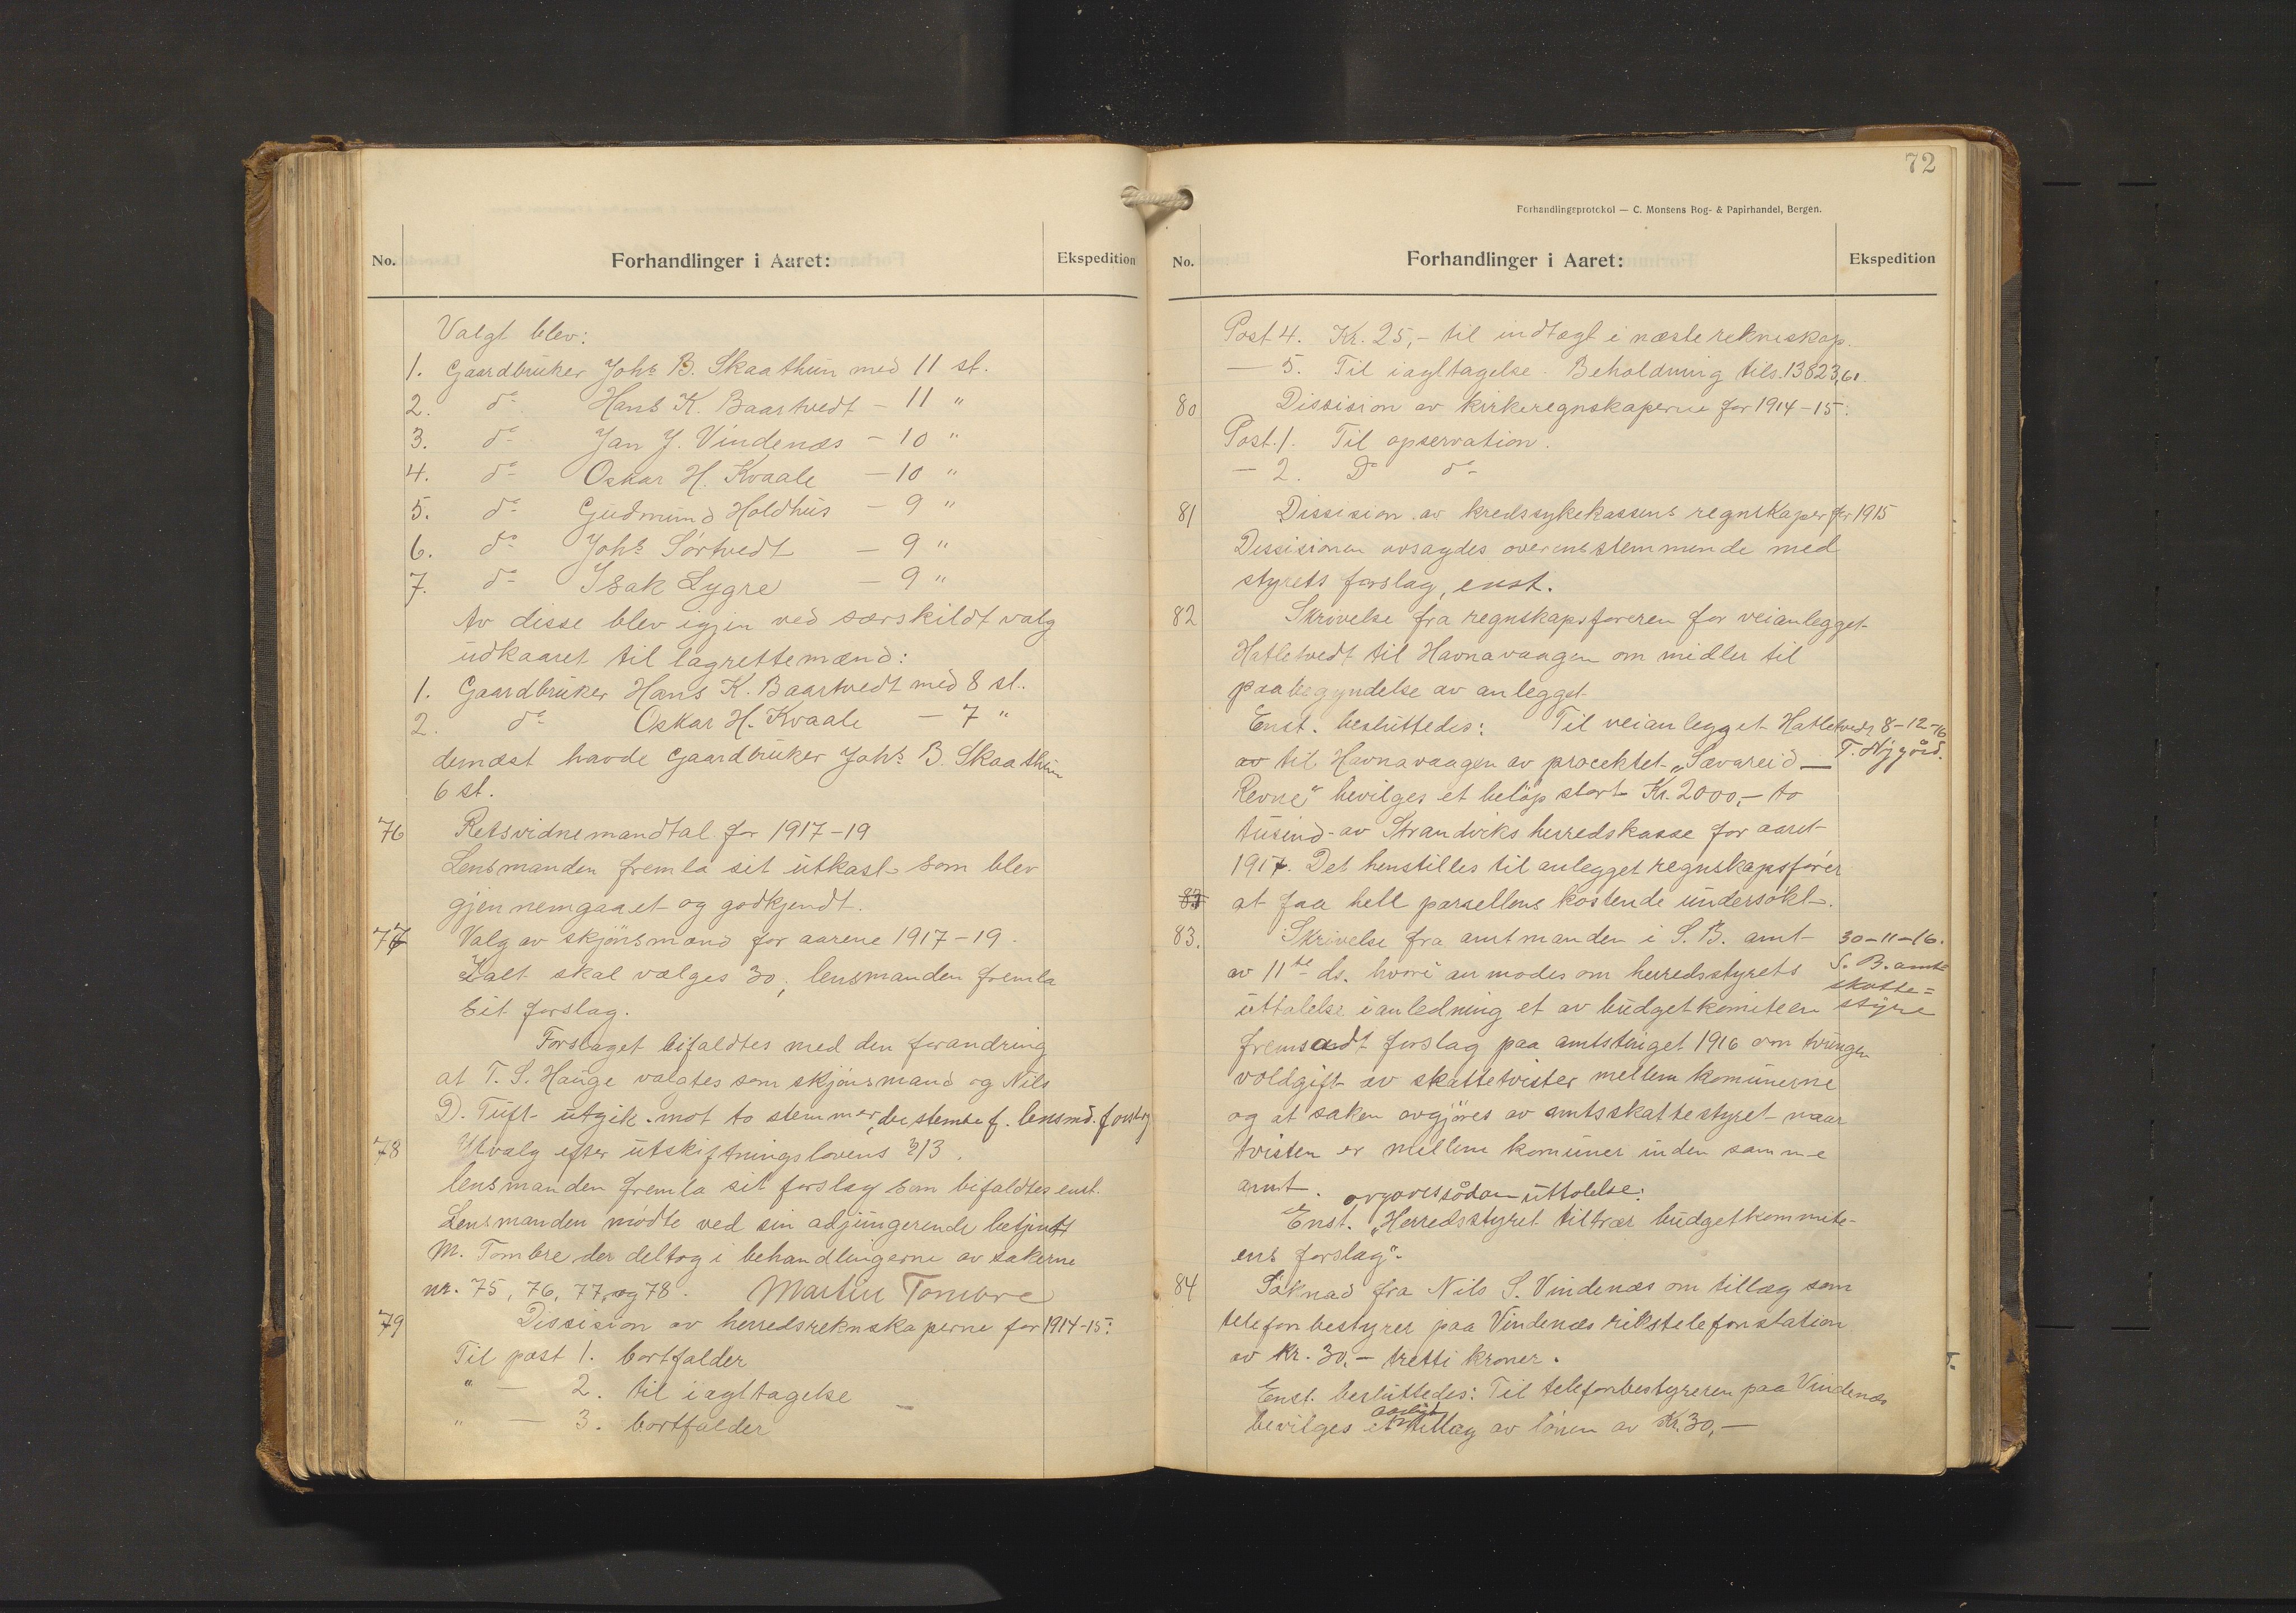 No.
Forhandlinger i Aaret:
Ekspedition
Valgt blev:
1. Gaardbruker Johs B. Skaathun med 11 st.
2. do Hans K. Baartvedt - 11 "
3. do Jan J. Vindenæs - 10 "
4. do Oskar H. Kvaale - 10 "
5. do Gudmund Holdhus - 9 "
6. do Johs Sørtvedt - 9 "
7. do Isak Lygre - 9 "
Av disse blev igjen ved særskildt valg
udkaaret til lagrettemænd:
1. Gaardbruker Hans K. Baartvedt med 8 st.
2. do Oskar H. Kvaale - 7 "
dernæst havde gaardbruker Johs B. Skaathun
6 st.
76 Retsvidnemandtal for 1917-19
Lensmanden fremla sit utkast som blev
gjennemgaaet og godkjendt.
77 Valg av skjönsmænd for aarene 1917-19.
Ialt skal vælges 30; lensmanden fremla
sit forslag.
Forslaget bifaldtes med den forandring
at T. S. Hauge valgtes som skjönsmand og Nils
D. Tuft utgik mot to stemmer, der stemte f. lensmd. forslag
78 Utvalg efter utskiftningslovens § 13.
lensmanden fremla sit forslag som bifaldtes enst.
Lensmanden mødte ved sin adjungerende betjent
M. Tombre der deltog i behandlingerne av sakerne
nr. 75, 76, 77, og 78. Martin Tombre
79 Dissision av herredsreknskaperne for 1914-15:
Til post 1. bortfalder
" - 2. til iagttagelse
" - 3. bortfalder
72
Forhandlingsprotokol — C. Monsens Bog- & Papirhandel, Bergen.
No.
Forhandlinger i Aaret:
Ekspedition
Post 4. Kr. 25,- til indtægt i næste rekneskap.
- 5. Til iagttagelse. Beholdning tils. 13823,61.
80 Dissision av kirkeregnskaperne for 1914-15:
Post. 1. Til opservation.
- 2. Do do
81 Dissision av kredssykekassens regnskaper for 1915
Dessisionen avsagdes overensstemmende med
styrets forslag, enst.
82 Skrivelse fra regnskapsføreren for veianlegget
Hatletvedt til Havnavaagen om midler til
paabegyndelse av anlegget
Enst. besluttedes: Til veianlegget Hatletvedt
8-12-16
T. Nygård.
av til Havnavaagen av procektet „Sævareid -
Revne" bevilges et beløp stort Kr. 2000,- to
tusind av Strandviks herredskasse for aaret
1917. Det henstilles til anlegget regnskapsfører
at faa hell parsellens kostende undersøkt.
83. Skrivelse fra amtmanden i S. B. amt
30-11-16.
S. B. amts
skatte=
styre
av 11te ds. hvori anmodes om herredsstyrets
uttalelse i anledning et av budgetkomiteen
fremsadt forslag paa amtstinget 1916 om tvungen
voldgift av skattetvister mellem komunerne
og at saken avgjøres av amtsskattestyret naar
tvisten er mellem komuner inden samme
amt. avgaves sådan uttalelse:
Enst. „Herredsstyret tiltrær budgetkommite-
ens forslag".
84 Søknad fra Nils S. Vindenæs om tillæg som
telefonbestyrer paa Vindenæs rikstelefonstation
av kr. 30,- tretti kroner.
Enst. besluttedes: Til telefonbestyreren paa Vindenæs
bevilges et aarligt tillæg av lönen av Kr. 30,-